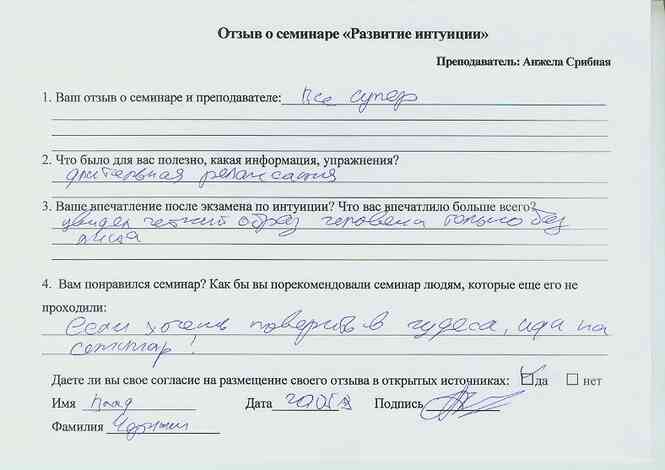 Отзыв о семинаре «Развитие интуиции»
Преподаватель: Анжела Срибная
1. Ваш отзыв о семинаре и преподавателе: Все супер
2. Что было для вас полезно, какая информация, упражнения?
длительная релаксация
3. Ваше впечатление после экзамена по интуиции? Что вас впечатлило больше всего?
увидел четкий образ человека только без
лица
4. Вам понравился семинар? Как бы вы порекомендовали семинар людям, которые еще его не
проходили:
Если хочешь поверить в чудеса, иди на
семинар!
Даете ли вы свое согласие на размещение своего отзыва в открытых источниках: да нет
Имя Влад Дата Подпись
Фамилия